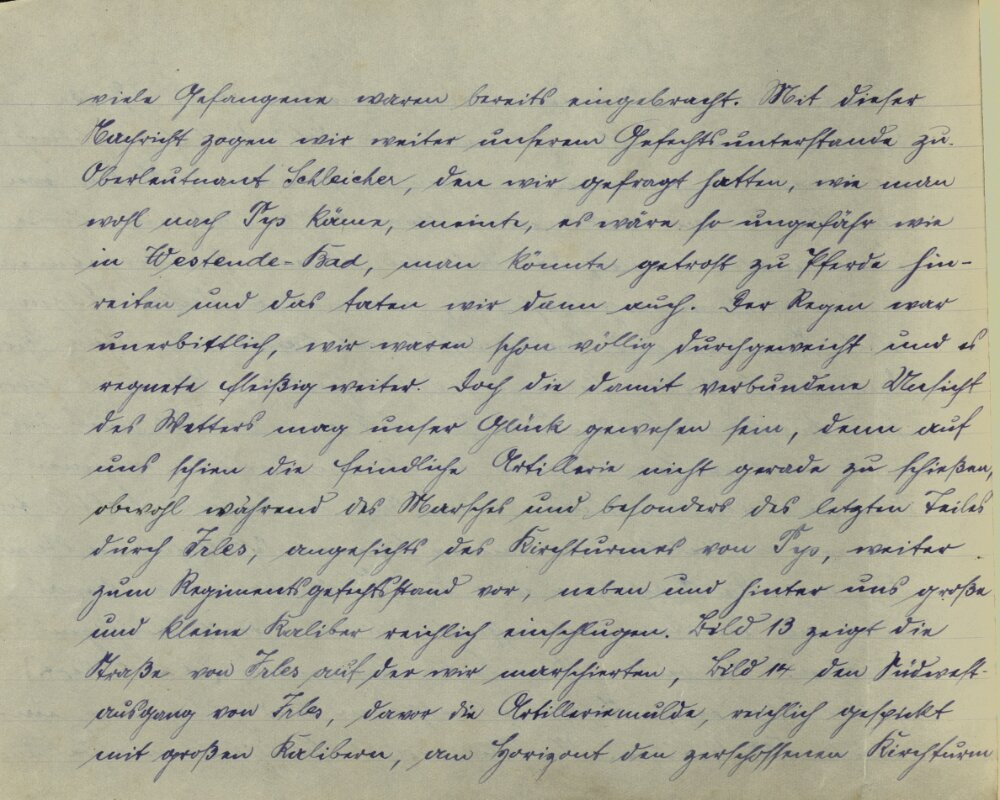 viele Gefangene waren bereits eingebracht. Mit dieser
Nachricht zogen wir weiter unserem Gefechtsunterstande zu.
Oberleutnant Schleicher, den wir gefragt hatten, wie man
wohl nach Pys käme, meinte, es wäre so ungefähr wie
in Westende-Bad, man könnte getrost zu Pferde hin-
reiten und das taten wir dann auch. Der Regen war
unerbittlich, wir waren schon völlig durchgeweicht und es
regnete fleißig weiter. Doch die damit verbundene Unsicht
des Wetters mag unser Glück gewesen sein, denn auf
uns schien die feindliche Artillerie nicht gerade zu schießen,
obwohl während des Marsches und besonders des letzten Teiles
durch Irles, angesichts des Kirchturmes von Pys, weiter
zum Regimentsgefechtsstand vor, neben und hinter uns große
und kleine Kaliber reichlich einschlugen. Bild 13 zeigt die
Straße von Irles auf der wir marschierten, Bild 14 den Südwest-
ausgang von Irles, davor die Artilleriemulde, reichlich gespickt
mit großen Kalibern, am Horizont den zerschossenen Kirchturm